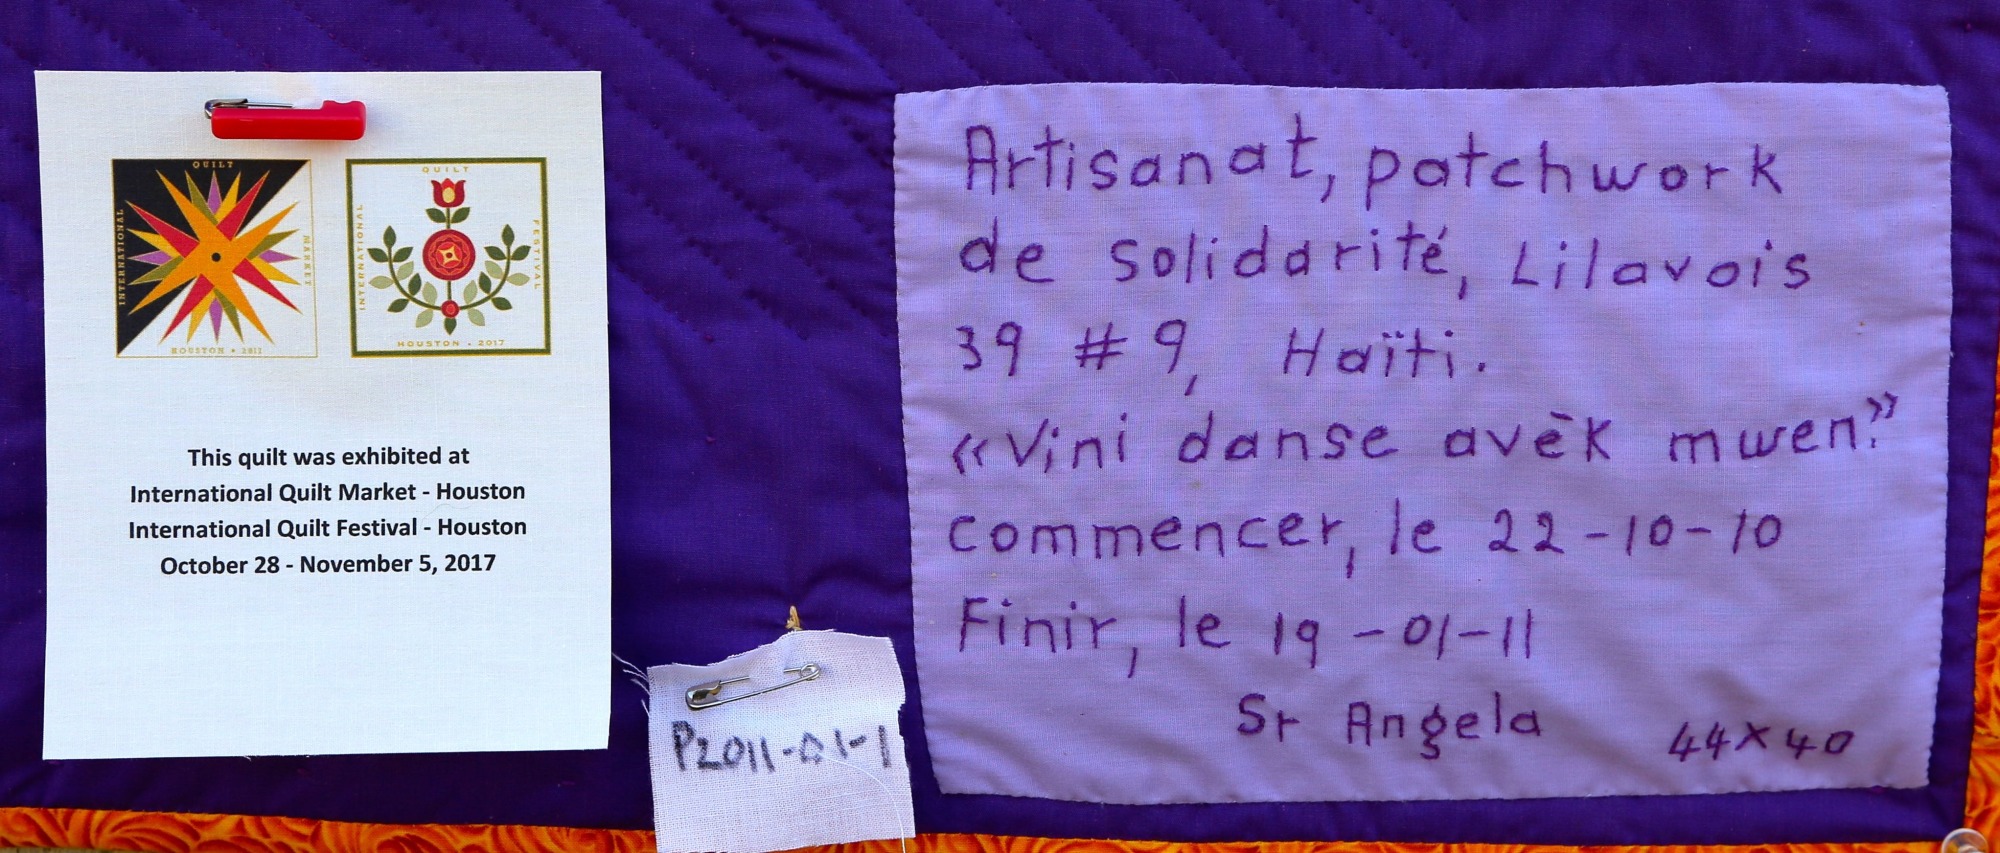 QUILT
INTERNATIONAL
MARKET
HOUSTON • 2011
QUILT
INTERNATIONAL
FESTIVAL
HOUSTON • 2017
This quilt was exhibited at
International Quilt Market - Houston
International Quilt Festival - Houston
October 28 - November 5, 2017
P2011-01-1
Artisanat, patchwork
de solidarité, Lilavois
39 # 9, Haïti.
«Vini danse avèk mwen!»
commencer, le 22-10-10
Finir, le 19-01-11
Sr Angela
44x40